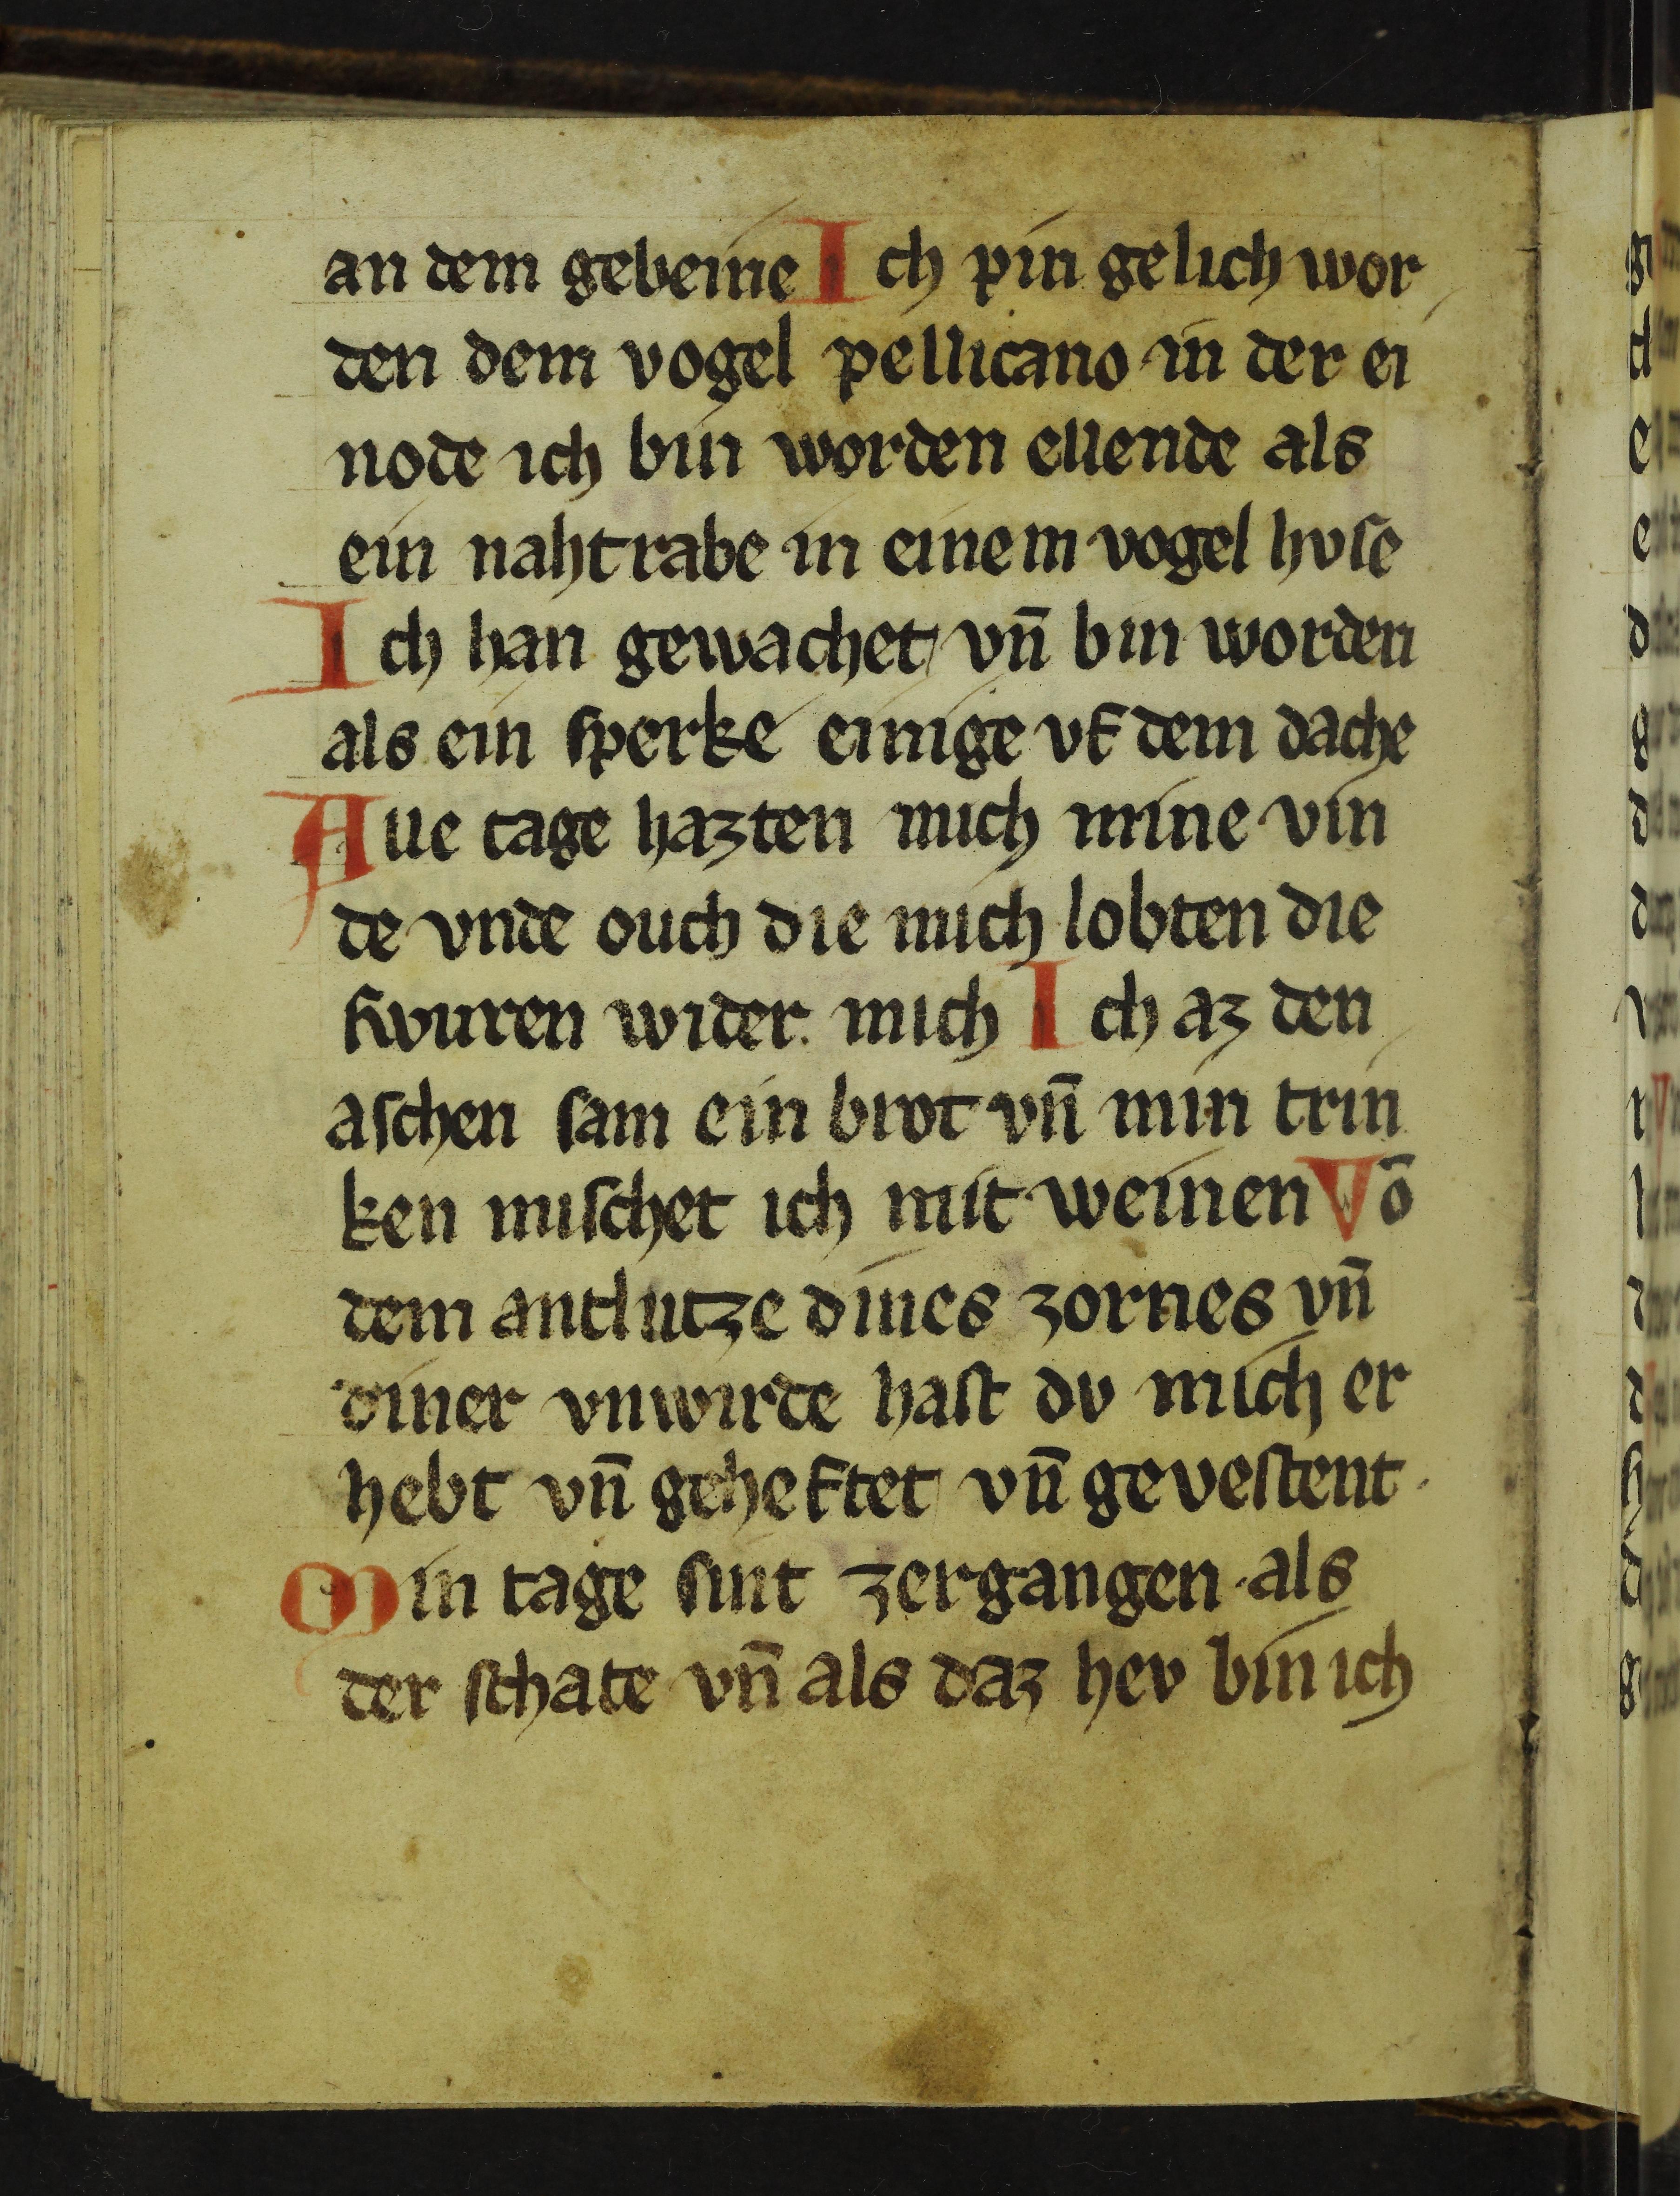 an dem gebeine Ich pin gelich wor
den dem vogel pellicano in der ei
node ich bin worden ellende als
ein nahtrabe in einem vogel hvſe
Ich han gewachet vn̄ bin worden
als ein ſperke einige vf dem dache
Alle tage hazten mich mine vin
de vnde ouch die mich lobten die
ſwuren wider mich Ich az den
aſchen ſam ein brot vn̄ min trin
ken miſchet ich mit weinen Vō
dem antlutze dines zornes vn̄
diner vnwirde haſt dv mich er
hebt vn̄ geheftet vn̄ geveſtent
Min tage ſint zergangen als
der ſchate vn̄ als daz hev bin ich